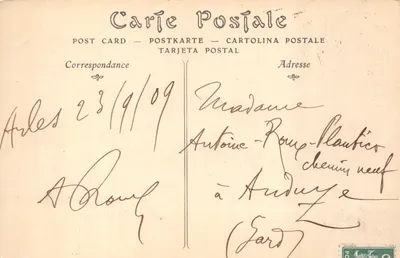 Carte Postale
POST CARD — POSTKARTE — CARTOLINA POSTALE
TARJETA POSTAL
Correspondance
Arles 23/9/09
A Roux
Adresse
Madame
Antoine-Roux-Plantier
chemin neuf
à Anduze
(Gard)